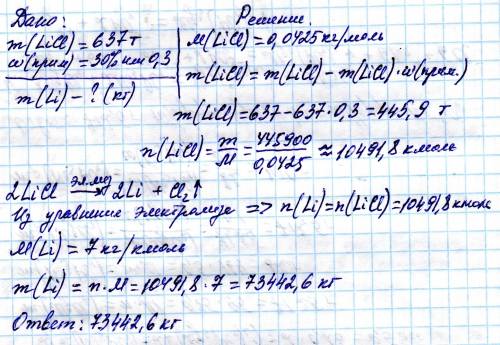 Дано:
m(LiCl) = 637 т
ω(прим) = 30% или 0,3
m(Li) - ? (кг)
Решение.
M(LiCl) = 0,0425 кг/моль
m(LiCl) = m(LiCl) - m(LiCl)·ω(прим.)
m(LiCl) = 637 - 637·0,3 = 445,9 т
n(LiCl) = m/M = 445900/0,0425 ≈ 10491,8 кмоль
2LiCl эл.ток → 2Li + Cl₂↑
Из уравнение электролиза => n(Li) = n(LiCl) = 10491,8 кмоль
M(Li) = 7 кг/кмоль
m(Li) = n·M = 10491,8·7 = 73442,6 кг
Ответ: 73442,6 кг